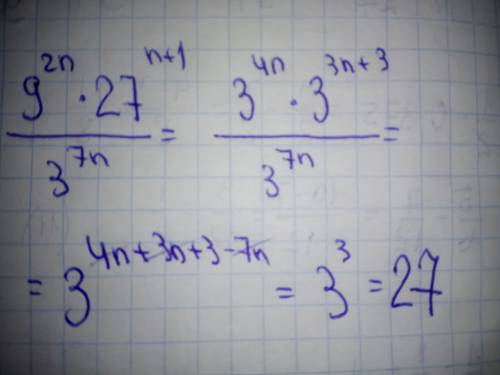 9^{2n} · 27^{n+1} / 3^{7n} = 3^{4n} · 3^{3n+3} / 3^{7n} =
= 3^{4n+3n+3-7n} = 3^3 = 27